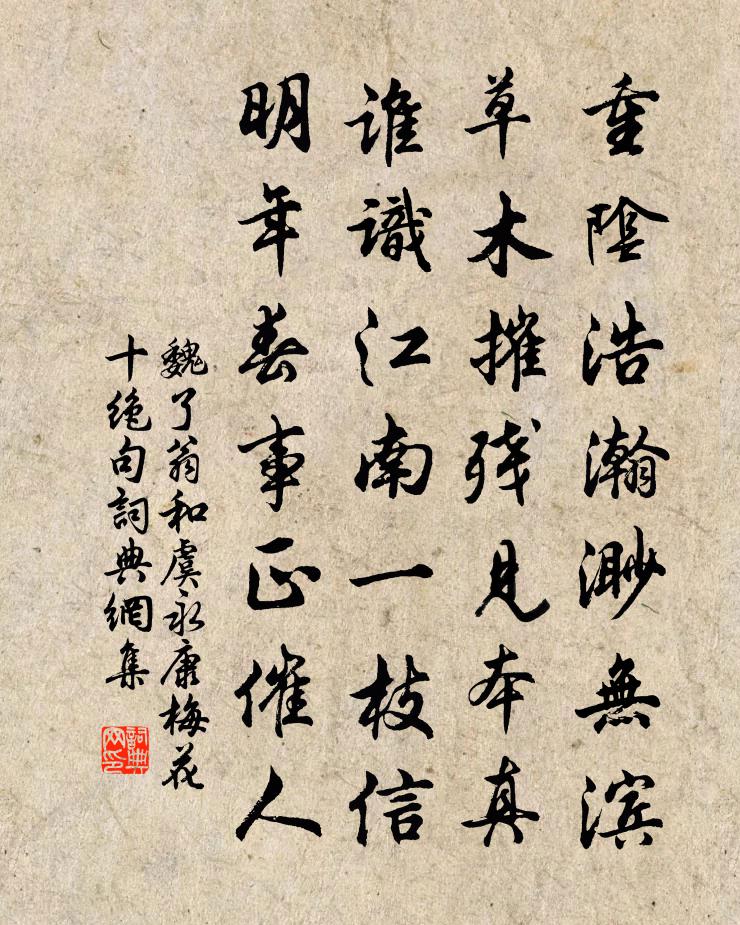 重陰浩瀚渺無濱
草木摧残見本真
誰識江南一枝信
明年春事正催人
魏了翁和虞永康梅花
十絶句詞典網集
詞典
网印